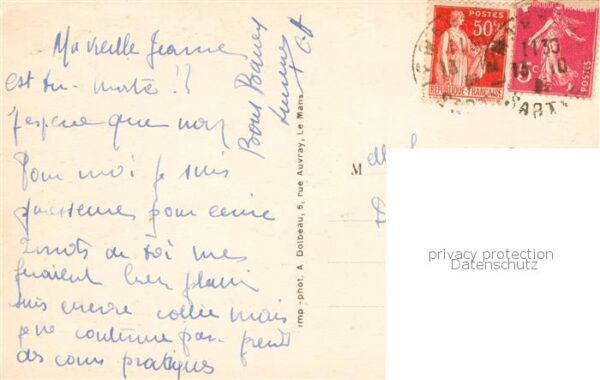 Ma vieille Jeanne
est tu mate !?
J'espere que non
Pour moi je suis
paresseuse pour ecrire
2 mots de toi me
feraient bien plaisir
suis encore collée mais
je ne continue pas. prend
des cours pratiques
Bons Baisers
Imp.-phot. A. Dolbeau, 6, rue Auvray, Le Mans
M elle
POSTES
50c
RÉPUBLIQUE FRANÇAISE
POSTES
11 30
15 10
privacy protection
Datenschutz